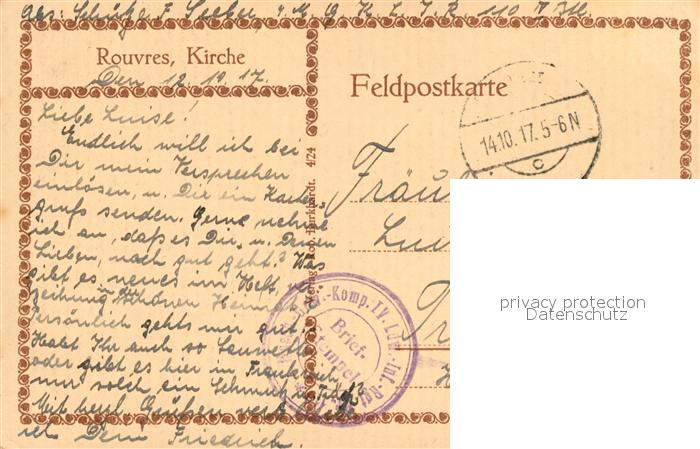 Abs: Schütze F. Seeber, 4. M. G. K. L. I. R. 110
Rouvres, Kirche
Den 12.10.17.
Feldpostkarte
14.10.17.5-6N
c
Liebe Luise!
Endlich will ich bei
Dir mein Versprechen
einlösen, u. Dir ein Karten-
gruß senden. Gerne nehme
ich an, daß es Dir, u. Deinen
Lieben, noch gut geht? Was
gibt es neues im Heft,
zeihung in der schönen Heimat?
Persönlich gehts mir gut.
Habt Ihr auch so
oder gibt es hier in Frankreich
nur solch ein
Mit herzl. Grüßen
ich Dein Friedrich.
Rob. Burkhardt. 4124
Komp. IV Lds. Inf. Reg.
Brief-
stempel
privacy protection
Datenschutz